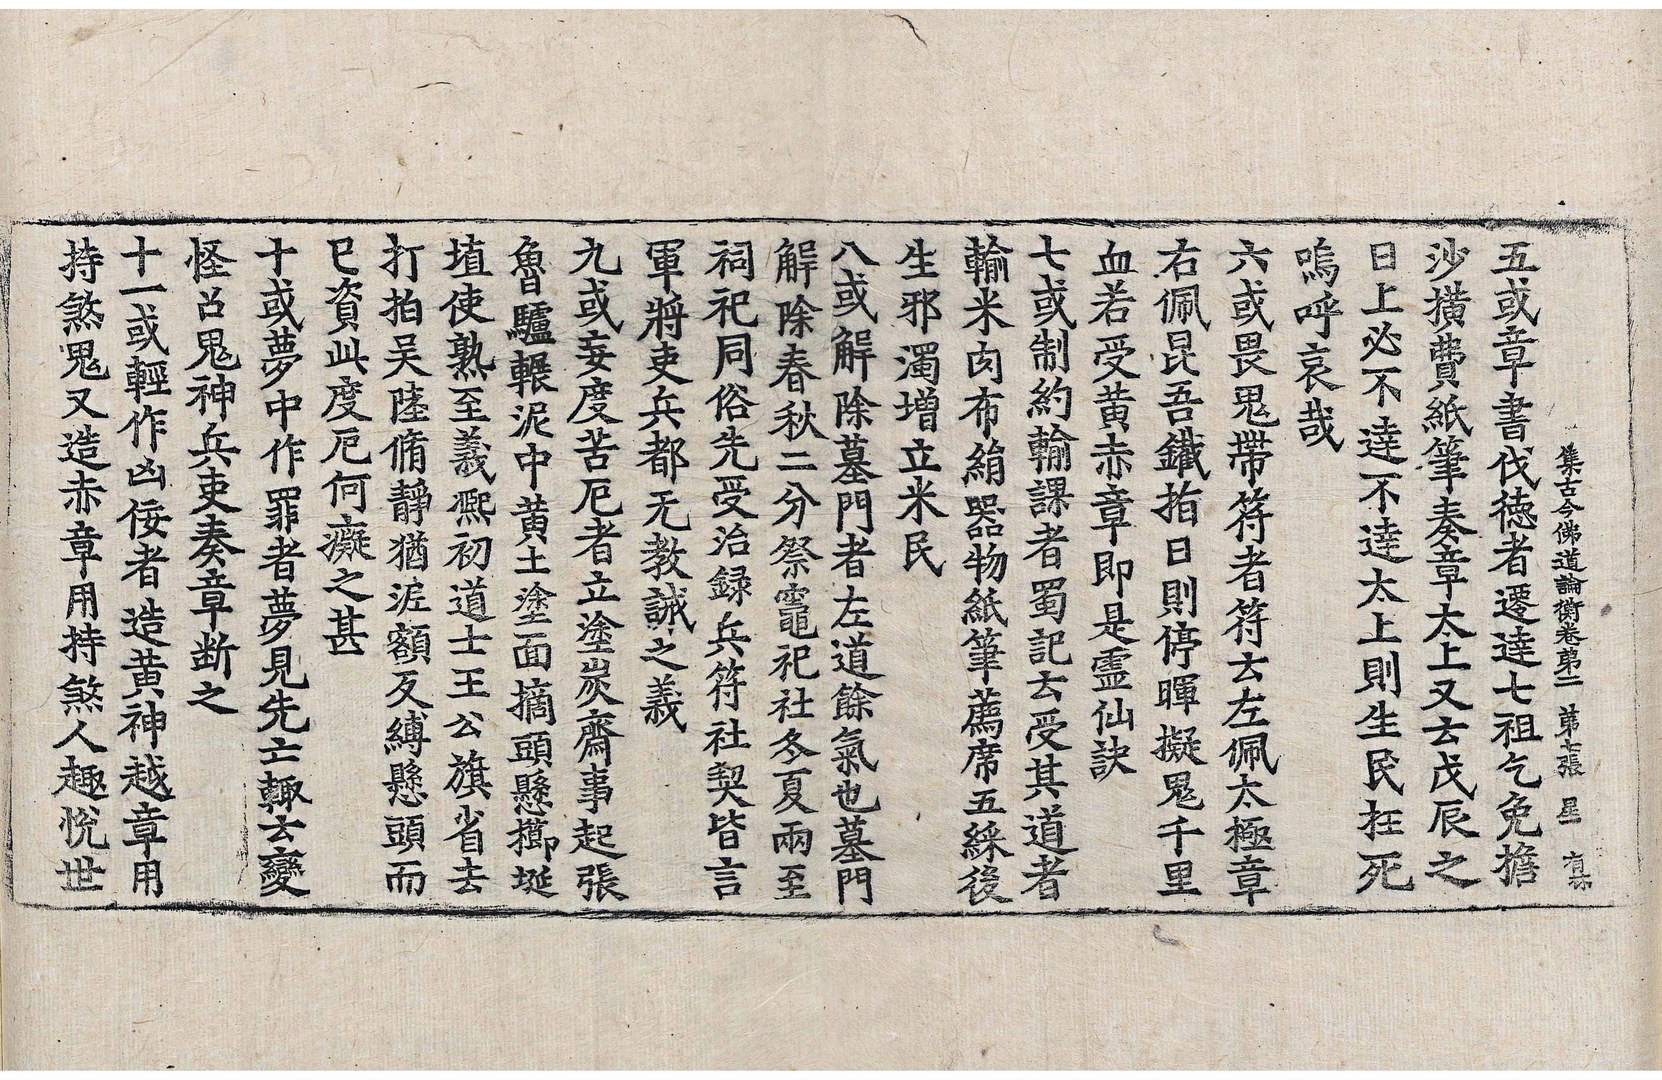 集古今佛道論衡卷第二 第七張 星
五或章書伐德者遷達七祖乞免擔
沙擴費紙筆奏章太上又云戊辰之
日上必不達不達太上則生民抂死
嗚呼哀哉
六或畏鬼帶符者符云左佩太極章
右佩昆吾鐵指日則停暉擬鬼千里
血若受黃赤章即是靈仙訣
七或制約輸課者蜀記云受其道者
輸米肉布絹器物紙筆薦席五綵後
生邪濁增立米民
八或解除墓門者左道餘氣也墓門
解除春秋二分祭竈祀社冬夏兩至
祠祀同俗先受治録兵符社契皆言
軍將吏兵都无教誡之義
九或妄度苦厄者立塗炭齋事起張
魯驢輾泥中黃土塗面摘頭懸櫛埏
埴使熟至義熈初道士王公旗省去
打拍吴陸脩靜猶泥額反縛懸頭而
已資此度厄何癡之甚
十或夢中作罪者夢見先亡輙云變
怪召鬼神兵吏奏章断之
十一或輕作凶佞者造黃神越章用
持煞鬼又造赤章用持煞人趣恱世